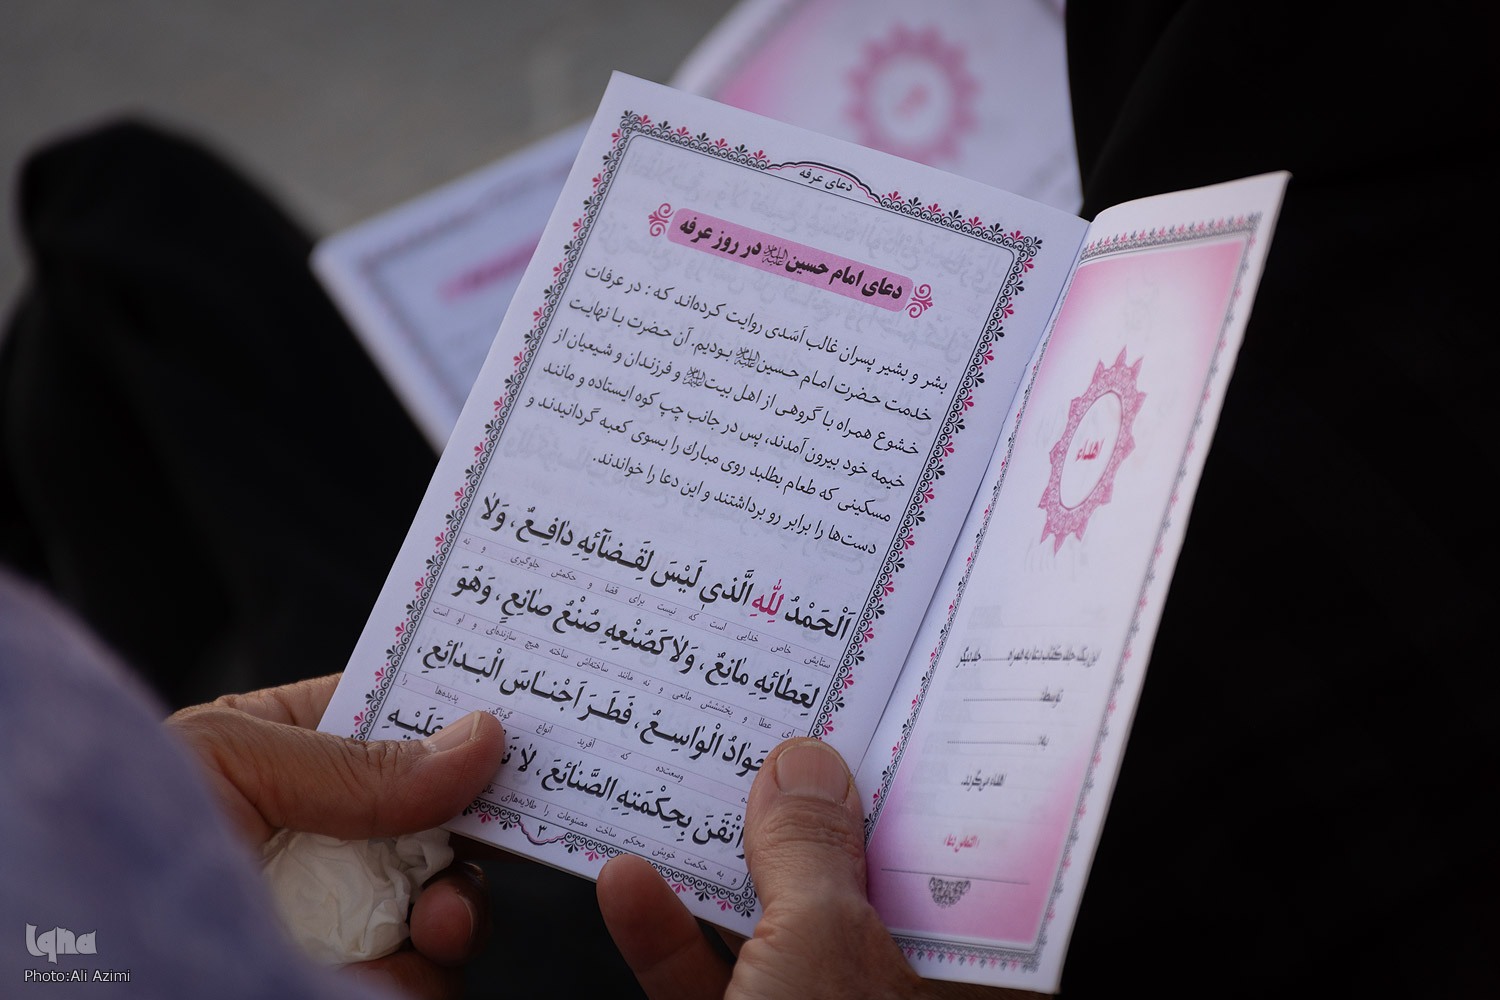 دعای عرفه
دعای امام حسین علیه‌السلام در روز عرفه
بشر و بشیر پسران غالب اَسَدی روایت کرده‌اند که : در عرفات
خدمت حضرت امام حسین علیه‌السلام بودیم. آن حضرت با نهایت
خشوع همراه با گروهی از اهل بیت علیهم‌السلام و فرزندان و شیعیان از
خیمه خود بیرون آمدند، پس در جانب چپ کوه ایستاده و مانند
مسکینی که طعام بطلبد روی مبارك را بسوی کعبه گردانیدند و
دست‌ها را برابر رو برداشتند و این دعا را خواندند.
اَلْحَمْدُ لِلّٰهِ الَّذي لَيْسَ لِقَضٰٓائِهِ دٰافِعٌ، وَلاٰ
ستایش خاص خدایی است که نیست برای قضا و حکمش جلوگیری و نه
لِعَطٰائِهِ مٰانِعٌ، وَلاٰ كَصُنْعِهِ صُنْعُ صٰانِعٍ، وَهُوَ
برای عطا و بخششش مانعی و نه مانند ساخته‌اش ساخته هیچ سازنده‌ای و او است
الْوٰاسِعُ، فَطَرَ اَجْنٰاسَ الْبَدٰائِعِ،
وسعت‌ده که آفرید انواع گوناگون پدیده‌ها را
بِحِكْمَتِهِ الصَّنٰائِعَ، لاٰ عَلَيْهِ
و به حکمت خویش محکم ساخت مصنوعات را
۳
اهداء
این یک جلد کتاب دعا به همراه ........ جلد دیگر
توسط:
به:
اهداء می‌گردد.
«التماس دعا»
Iqna
Photo:Ali Azimi